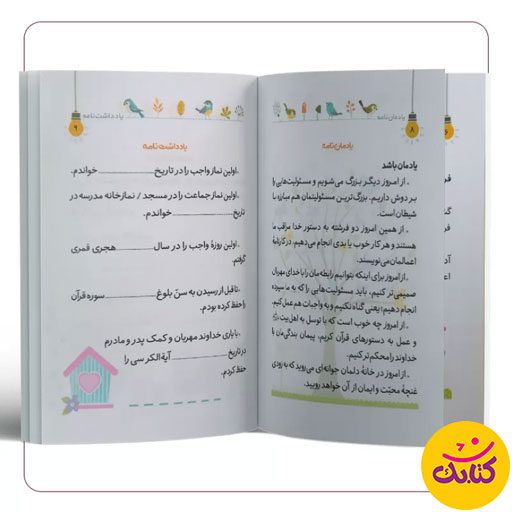 یادمان‌نامه
۸
یادمان‌نامه
یادمان باشد
. از امروز دیگر بزرگ می‌شویم و مسئولیت‌هایی را
بر دوش داریم. بزرگ‌ترین مسئولیتمان هم مبارزه با
شیطان است.
. از همین امروز دو فرشته به دستور خدا مراقب ما
هستند و هر کار خوب یا بدی انجام می‌دهیم، در کارنامهٔ
اعمالمان می‌نویسند.
. از امروز برای اینکه بتوانیم رابطه‌مان را با خدای مهربان
صمیمی‌تر کنیم، باید مسئولیت‌هایی را که به ما سپرده
انجام دهیم؛ یعنی گناه نکنیم و به واجبات هم عمل کنیم.
. از امروز چه خوب است که با توسل به اهل‌بیت
و عمل به دستورهای قرآن کریم، پیمان بندگی‌مان با
خداوند را محکم‌تر کنیم.
. از امروز در خانهٔ دلمان جوانه‌ای می‌روید که به زودی
غنچهٔ محبّت و ایمان از آن خواهد رویید.
یادداشت‌نامه
۹
یادداشت‌نامه
.اولین نماز واجب را در تاریخ ـــــــ خواندم.
.اولین نماز جماعت را در مسجد / نمازخانه مدرسه در
تاریخ ـــــــ خواندم.
.اولین روزهٔ واجب را در سال ـــــــ هجری قمری
گرفتم.
.تا قبل از رسیدن به سنّ بلوغ ـــــــ سوره قرآن
را حفظ کرده بودم.
.با یاری خداوند مهربان و کمک پدر و مادرم
در تاریخ ـــــــ آیة‌الکرسی را
حفظ کردم.
کتابک